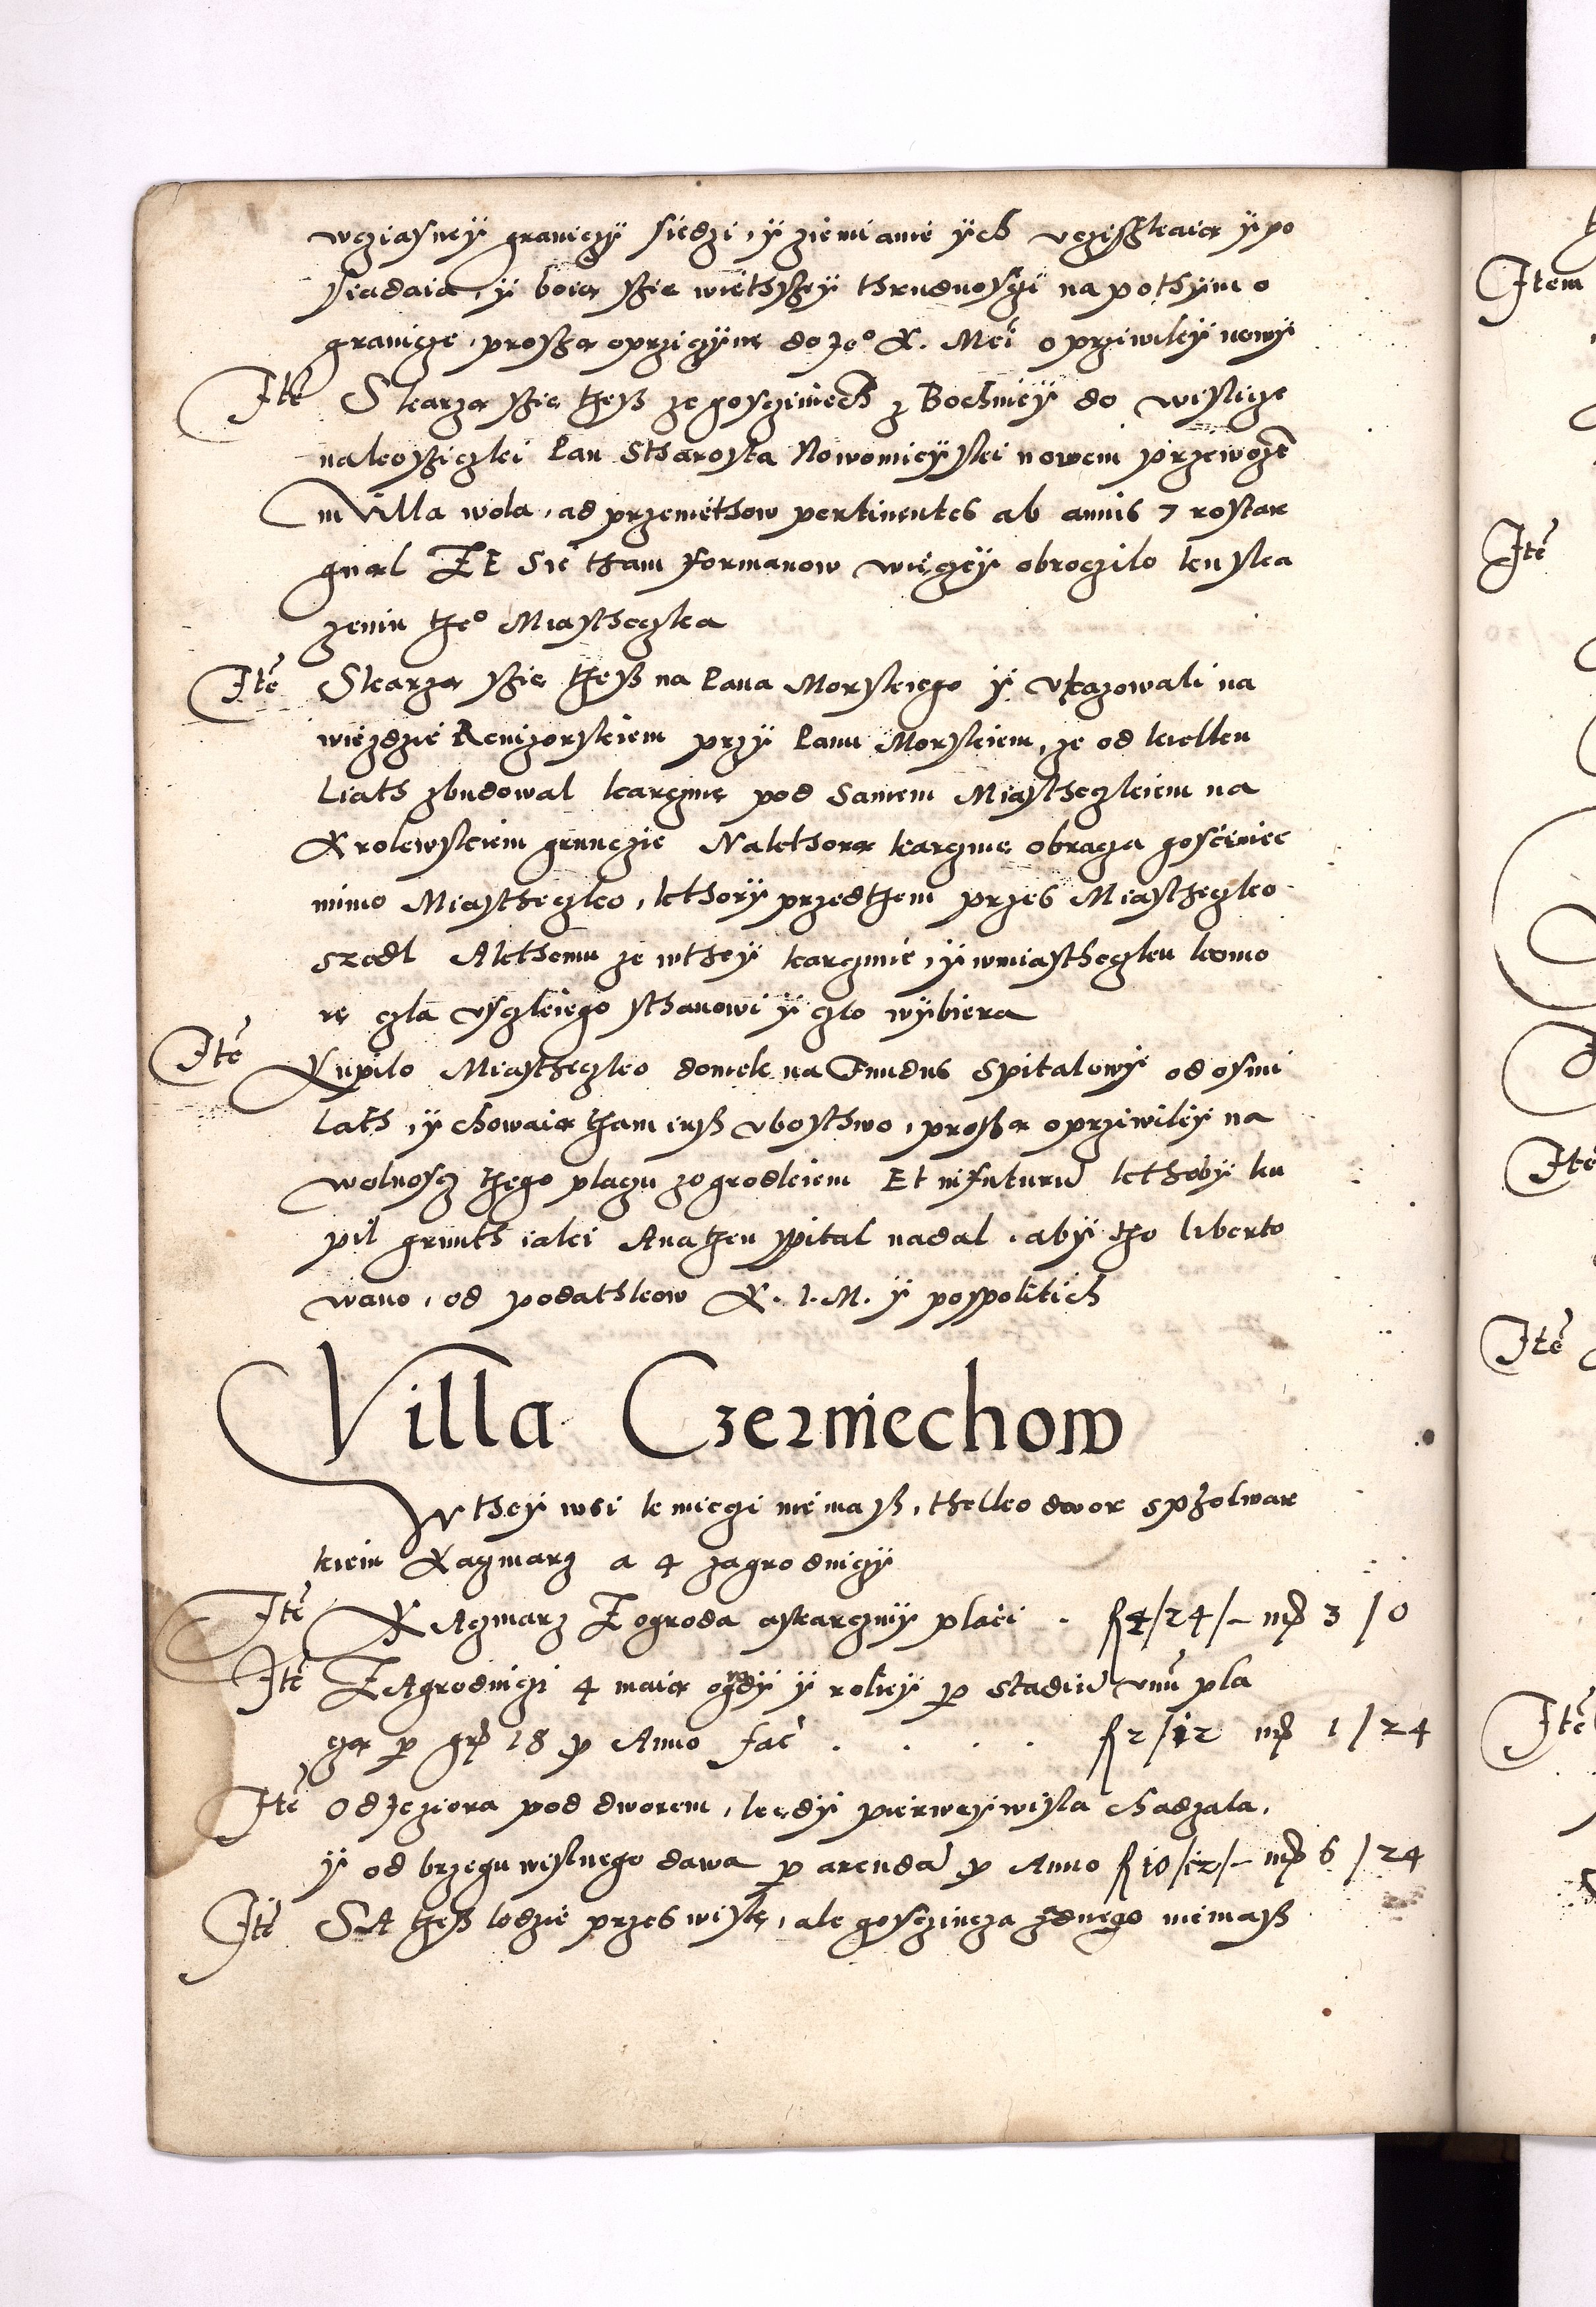 wcziasney graniczÿ siedzi, ÿ ziemianie ÿch vcziskaią ÿ po
siadaia, ÿ boią szie wiethszeÿ thrudnosczi na pothÿm o
granicze, proszą oprziczÿnę do Jeo K. Mci o prziwileÿ nowÿ
Ite Skarzą szie thesz ze goscziniecz z Bochnieÿ do Wislicze
na kosziczki Pan Starosta Nowomieÿski nowem przewoze
in Villa Wola, ad przemethow pertinentes ab annis 7 rostar
gnal Et Sie tham formanow wieczeÿ obroczilo ku ska
zeniu theo Miastheczka
Ite Skarzą szie thesz na Pana Morskiego ÿ vkazowali na
wiezdzie Rewizorskiem przÿ Panu Morskiem, ze od kielku
Liath zbudowal karczmę pod samem Miastheczkiem na
Krolewskiem gruncie Na kthorą karczmę obraca gosciniec
mimo Miastheczko, kthorÿ przedthem przes Miastheczko
szedl A kthemu ze wtheÿ karczmie, ÿ wmiastheczku komo
rę cla vsczkiego sthanowi ÿ czlo wÿbiera
Ite Kupilo Miastheczko domek na Fundus Spitalowÿ od osmi
Lath, ÿ chowaią tham iusz vbosthwo, proszą o prziwileÿ na
wolnoscz thego placzu zogrodkiem Et in futuru kthobÿ ku
pil grunth iaki A na then spital nadal, abÿ tho liberto
wano, od podathkow K. J. M. ÿ pospolitich
Villa Czerniechow
W theÿ wsi kmieczi niemasz, thelko dwor s pholwar
kiem Kaczmarz a 4 zagrodniczÿ
Ite Kaczmarz Z ogroda a skarczmÿ placi . fl 4/24/- mr 3 / 0
Ite Zagrodniczi 4 maią ogrodÿ ÿ roliey per stadiu vnu pla
czą per gr 18 pro Anno fac . . . . fl 2/12 mr 1/24
Ite Od Jeziora pod dworem, kędÿ pierweÿ wisla chadzala,
ÿ od brzegu wislnego dawa per arenda pro Anno fl 10/12/- mr 6/24
Ite Są thesz lodzie przes wislę, ale gosczincza zadnego niemasz
Item
Ite
Ite
Ite
Ite